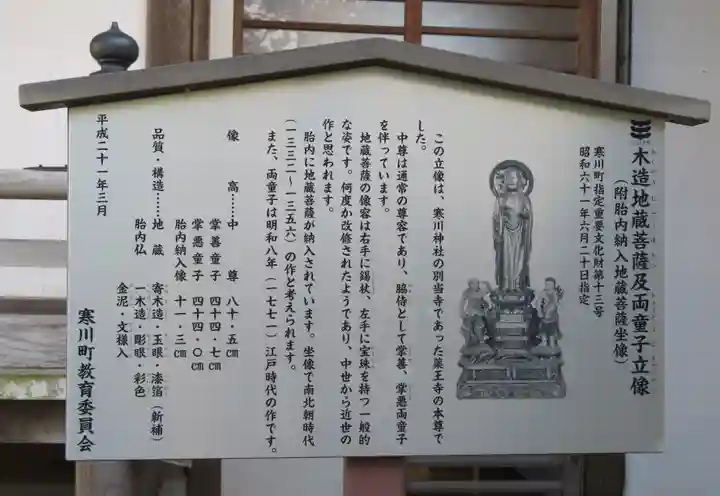 木造地蔵菩薩及両童子立像
（附胎内納入地蔵菩薩坐像）
寒川町指定重要文化財第十三号
昭和六十一年六月二十日指定
この立像は、寒川神社の別当寺であった薬王寺の本尊で
した。
中尊は通常の尊容であり、脇侍として掌善、掌悪両童子
を伴っています。
地蔵菩薩の像容は右手に錫杖、左手に宝珠を持つ一般的
な姿です。何度か改修されたようであり、中世から近世の
作と思われます。
胎内に地蔵菩薩が納入されています。坐像で南北朝時代
（一三三二～一三五六）の作と考えられます。
また、両童子は明和八年（一七七一）江戸時代の作です。
像　高……中　尊　八十・五㎝
掌善童子　四十四・七㎝
掌悪童子　四十四・〇㎝
胎内納入像　十一・三㎝
品質・構造……地　蔵　寄木造・玉眼・漆箔（新補）
胎内仏　一木造・彫眼・彩色
金泥・文様入
平成二十一年三月
寒川町教育委員会